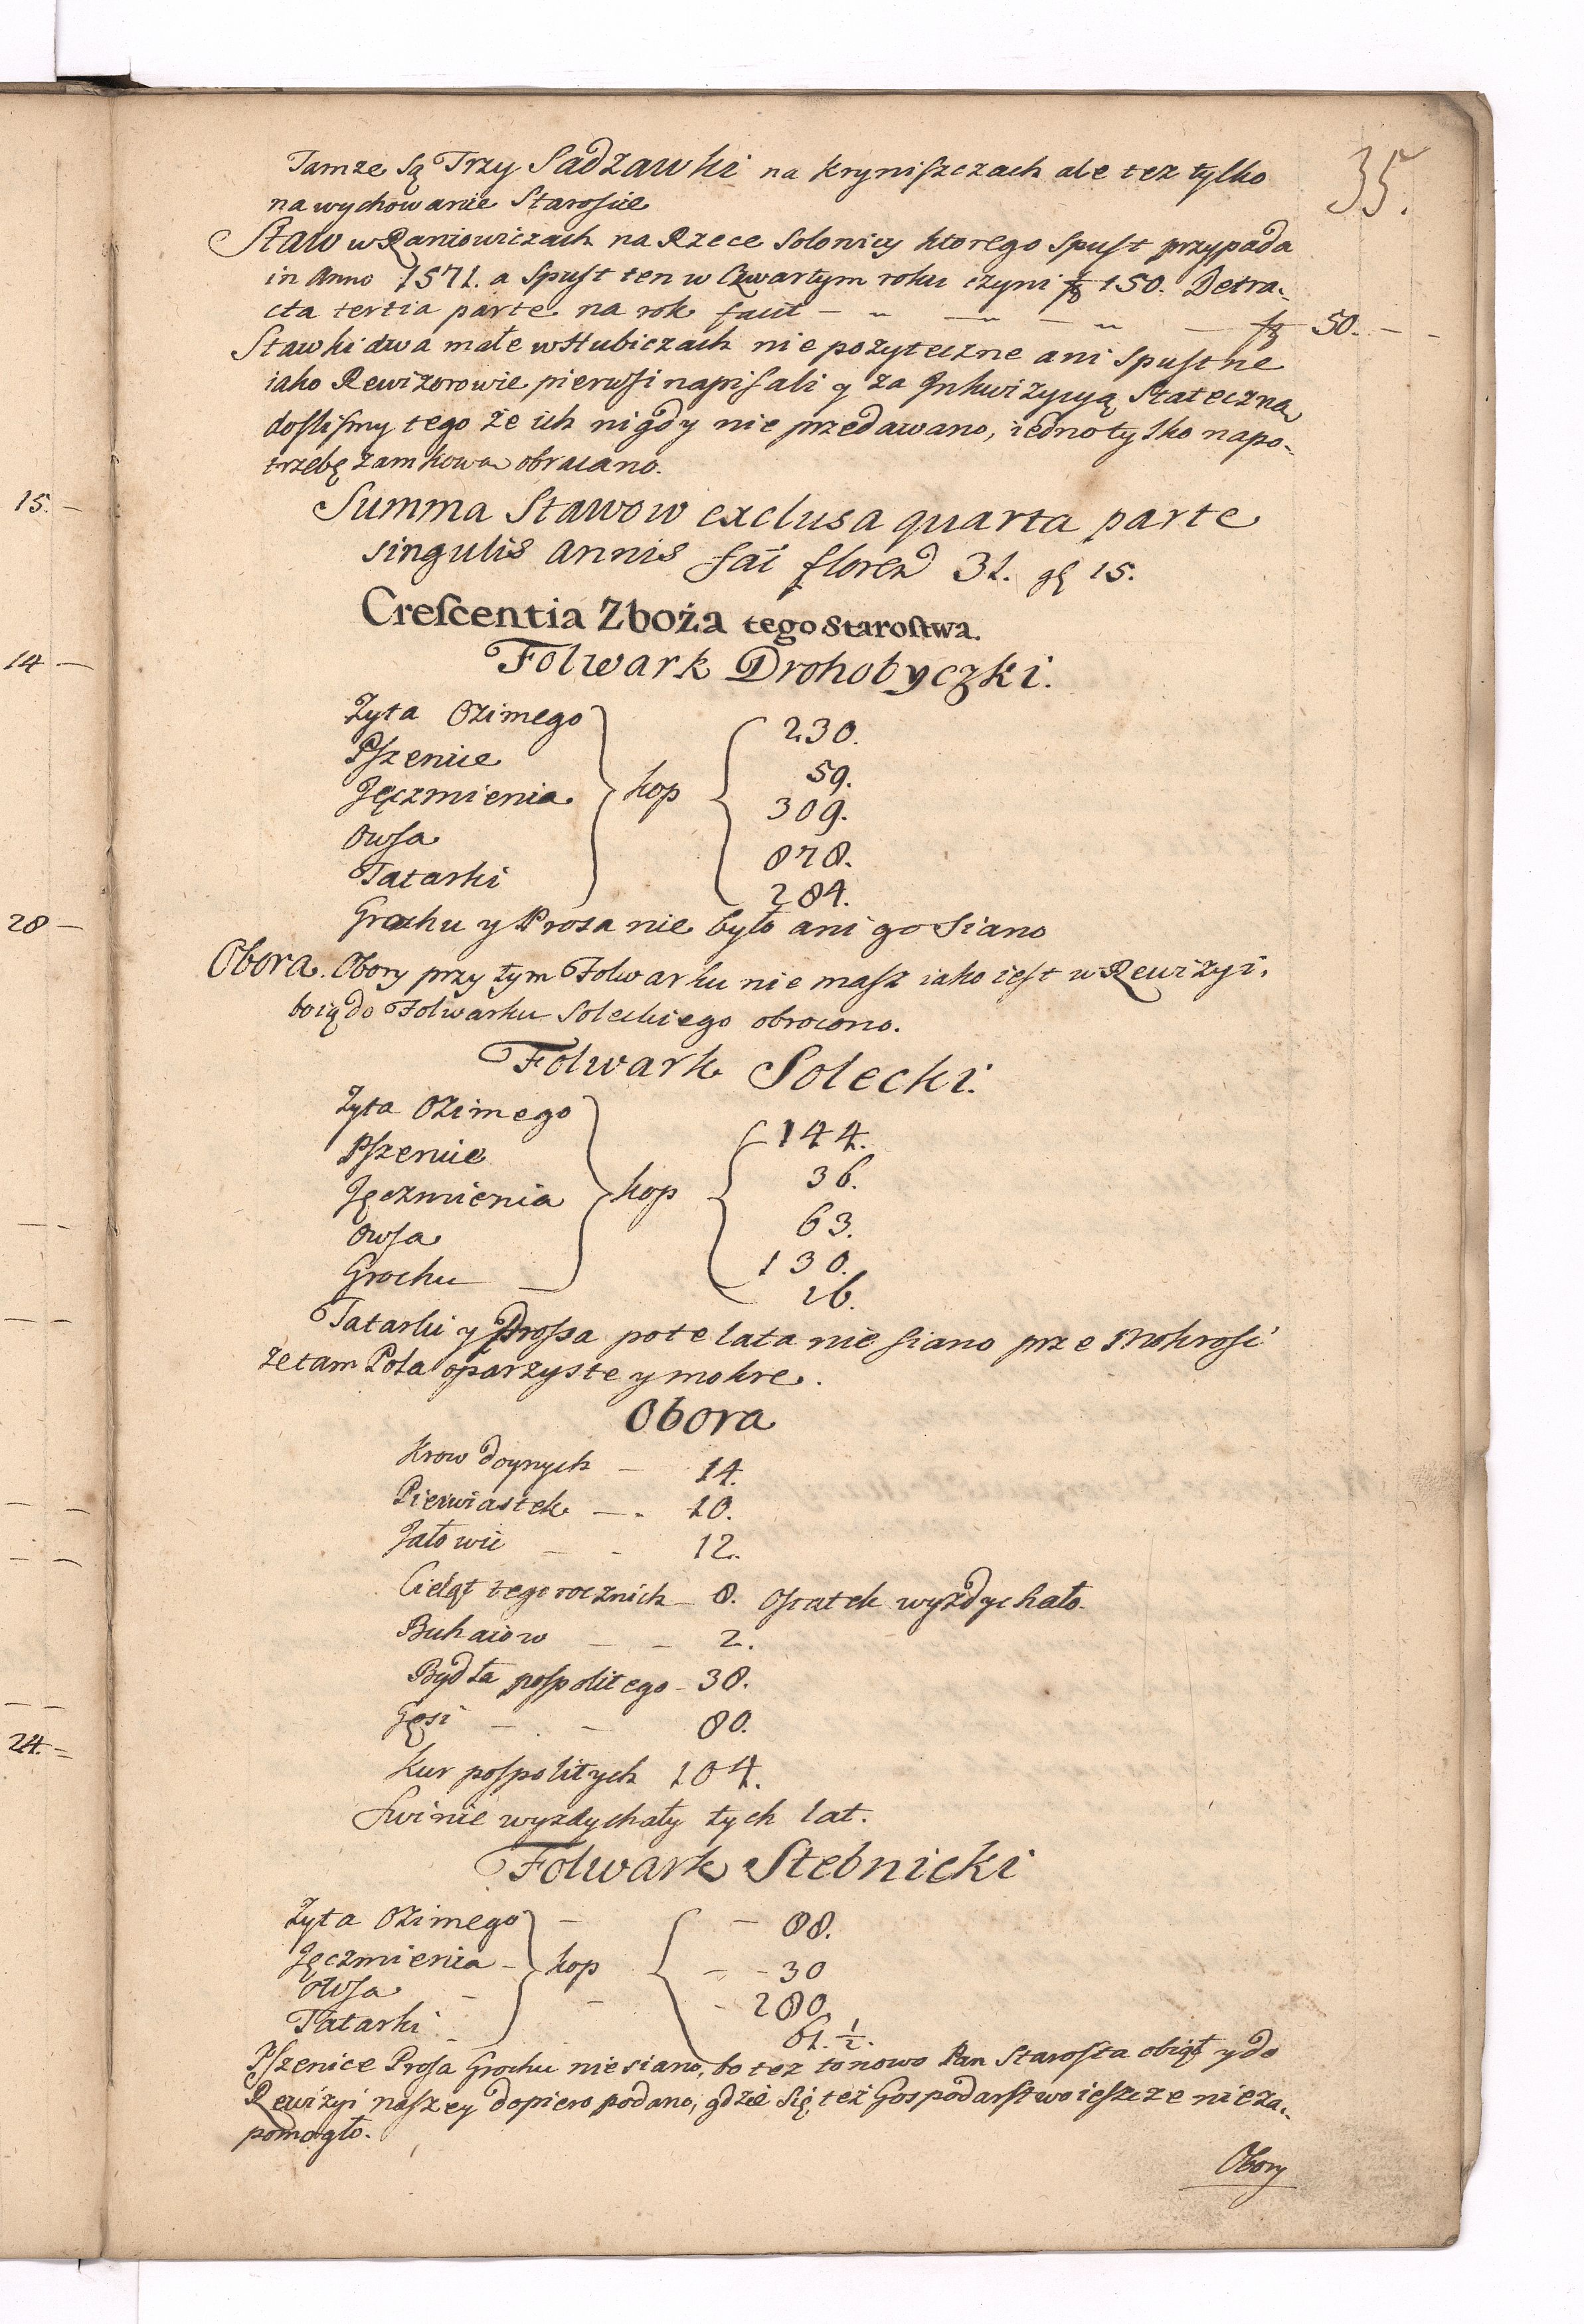 35.
Tamze są Trzy Sadzawki na Kryniszczach ale tez tylko
na wychowanie Starosiie
Staw w Raniowiczach na Rzece Solonicy ktorego Spust przypada
in Anno 1571. a Spust ten w Czwartym roku czyni fł 150. Detra-
cta tertia parte na rok faiit — „ — „ — „ — fł 50. — —
Stawki dwa małe w Hubiczach nie pozyteczne ani Spustne
iako Rewizorowie pierwsi napisali y za Inkwizycyą Stateczną
doslismy tego że ich nigdy nie przedawano, iedno tylko na po-
trzebę zamkowa obracano.
Summa Stawow exclusa quarta parte
singulis annis fāi floren 31. gł 15.
Crescentia Zboża tego Starostwa.
Folwark Drohobyczki.
Zyta Ozimego 230.
Pszenice 59.
Jęczmienia kop 309.
Owsa 878.
Tatarki 284.
Grochu y Prosa nie było ani go Siano
Obora. Obory przy tym Folwarku nie masz iako iest w Rewizyi.
bo ią do Folwarku Soleckiego obrocono.
Folwark Solecki.
Zyta Ozimego 144.
Pszenice 36.
Jęczmienia kop 63.
Owsa 130.
Grochu — 26.
Tatarki y Prossa po te lata nie siano prze Mokrosc
ze tam Pola oparzyste y mokre.
Obora
Krow doynych — 14.
Pierwiastek — - 10.
Jałowic — - 12.
Cieląt tegorocznich — 8. Ostatek wyzdychało.
Buhaiow — — 2.
Bydła pospolitego - 38.
Gęsi — - — 80.
Kur pospolitych 104.
Swinie wyzdychały tych lat.
Folwark Stebnicki
Zyta Ozimego — — 88.
Jęczmienia - kop — - 30
Owsa - - - 280.
Tatarki - 61. ½.
Pszenice Prosa Grochu nie siano, bo tez to nowo Pan Starosta obiął y do
Rewizyi naszey dopiero podano, gdzie się też Gospodarstwo ieszcze nie za-
pomogło.
Obory
15. —
14 —
28 —
24. =